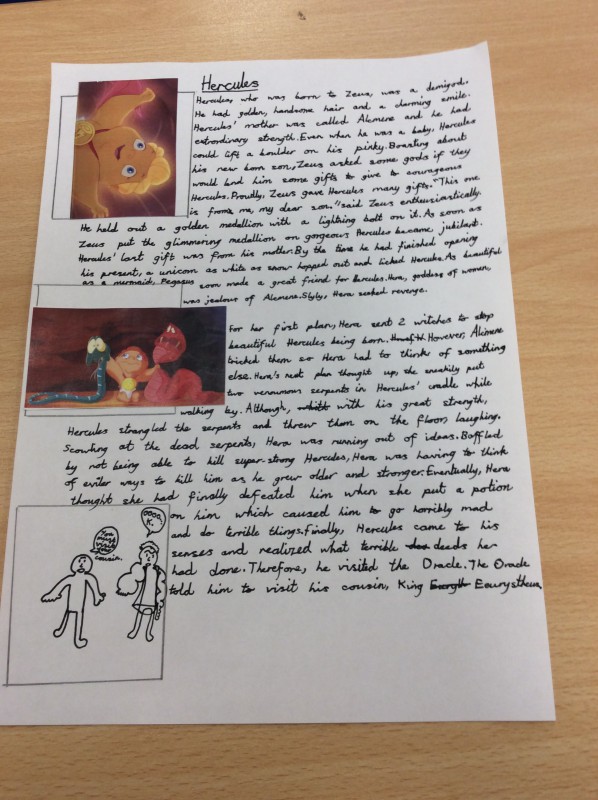 Hercules
Hercules, who was born to Zeus, was a demigod.
He had golden, handsome hair and a charming smile.
Hercules' mother was called Alcmene and he had
extraordinary strength. Even when he was a baby, Hercules
could lift a boulder on his pinky. Boasting about
his new born son, Zeus asked some gods if they
would lend him some gifts to give to courageous
Hercules. Proudly, Zeus gave Hercules many gifts. "This one
is from me, my dear son." said Zeus enthusiastically.
He held out a golden medallion with a lightning bolt on it. As soon as
Zeus put the glimmering medallion on gorgeous Hercules became jubilant.
Hercules' last gift was from his mother. By the time he had finished opening
his present, a unicorn as white as snow hopped out and licked Hercules. As beautiful
as a mermaid, Pegasus soon made a great friend for Hercules. Hera, goddess of women,
was jealous of Alcmene. Slyly, Hera seeked revenge.
For her first plan, Hera sent 2 witches to stop
beautiful Hercules being born. However, Alcmene
tricked them so Hera had to think of something
else. Hera's next plan thought up, she sneakily put
two venumous serpents in Hercules' cradle while
walking by. Although, with his great strength,
Hercules strangled the serpents and threw them on the floor, laughing.
Scowling at the dead serpents, Hera was running out of ideas. Baffled
by not being able to kill super-strong Hercules, Hera was having to think
of eviler ways to kill him as he grew older and stronger. Eventually, Hera
thought she had finally defeated him when she put a potion
on him which caused him to go horribly mad
and do terrible things. Finally, Hercules came to his
senses and realised what terrible deeds he
had done. Therefore, he visited the Oracle. The Oracle
told him to visit his cousin, King Eaurystheus
You must visit your cousin.
OOOO, K.